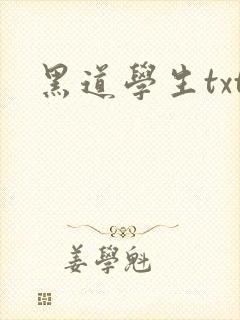 黑道學生txt
姜學魁